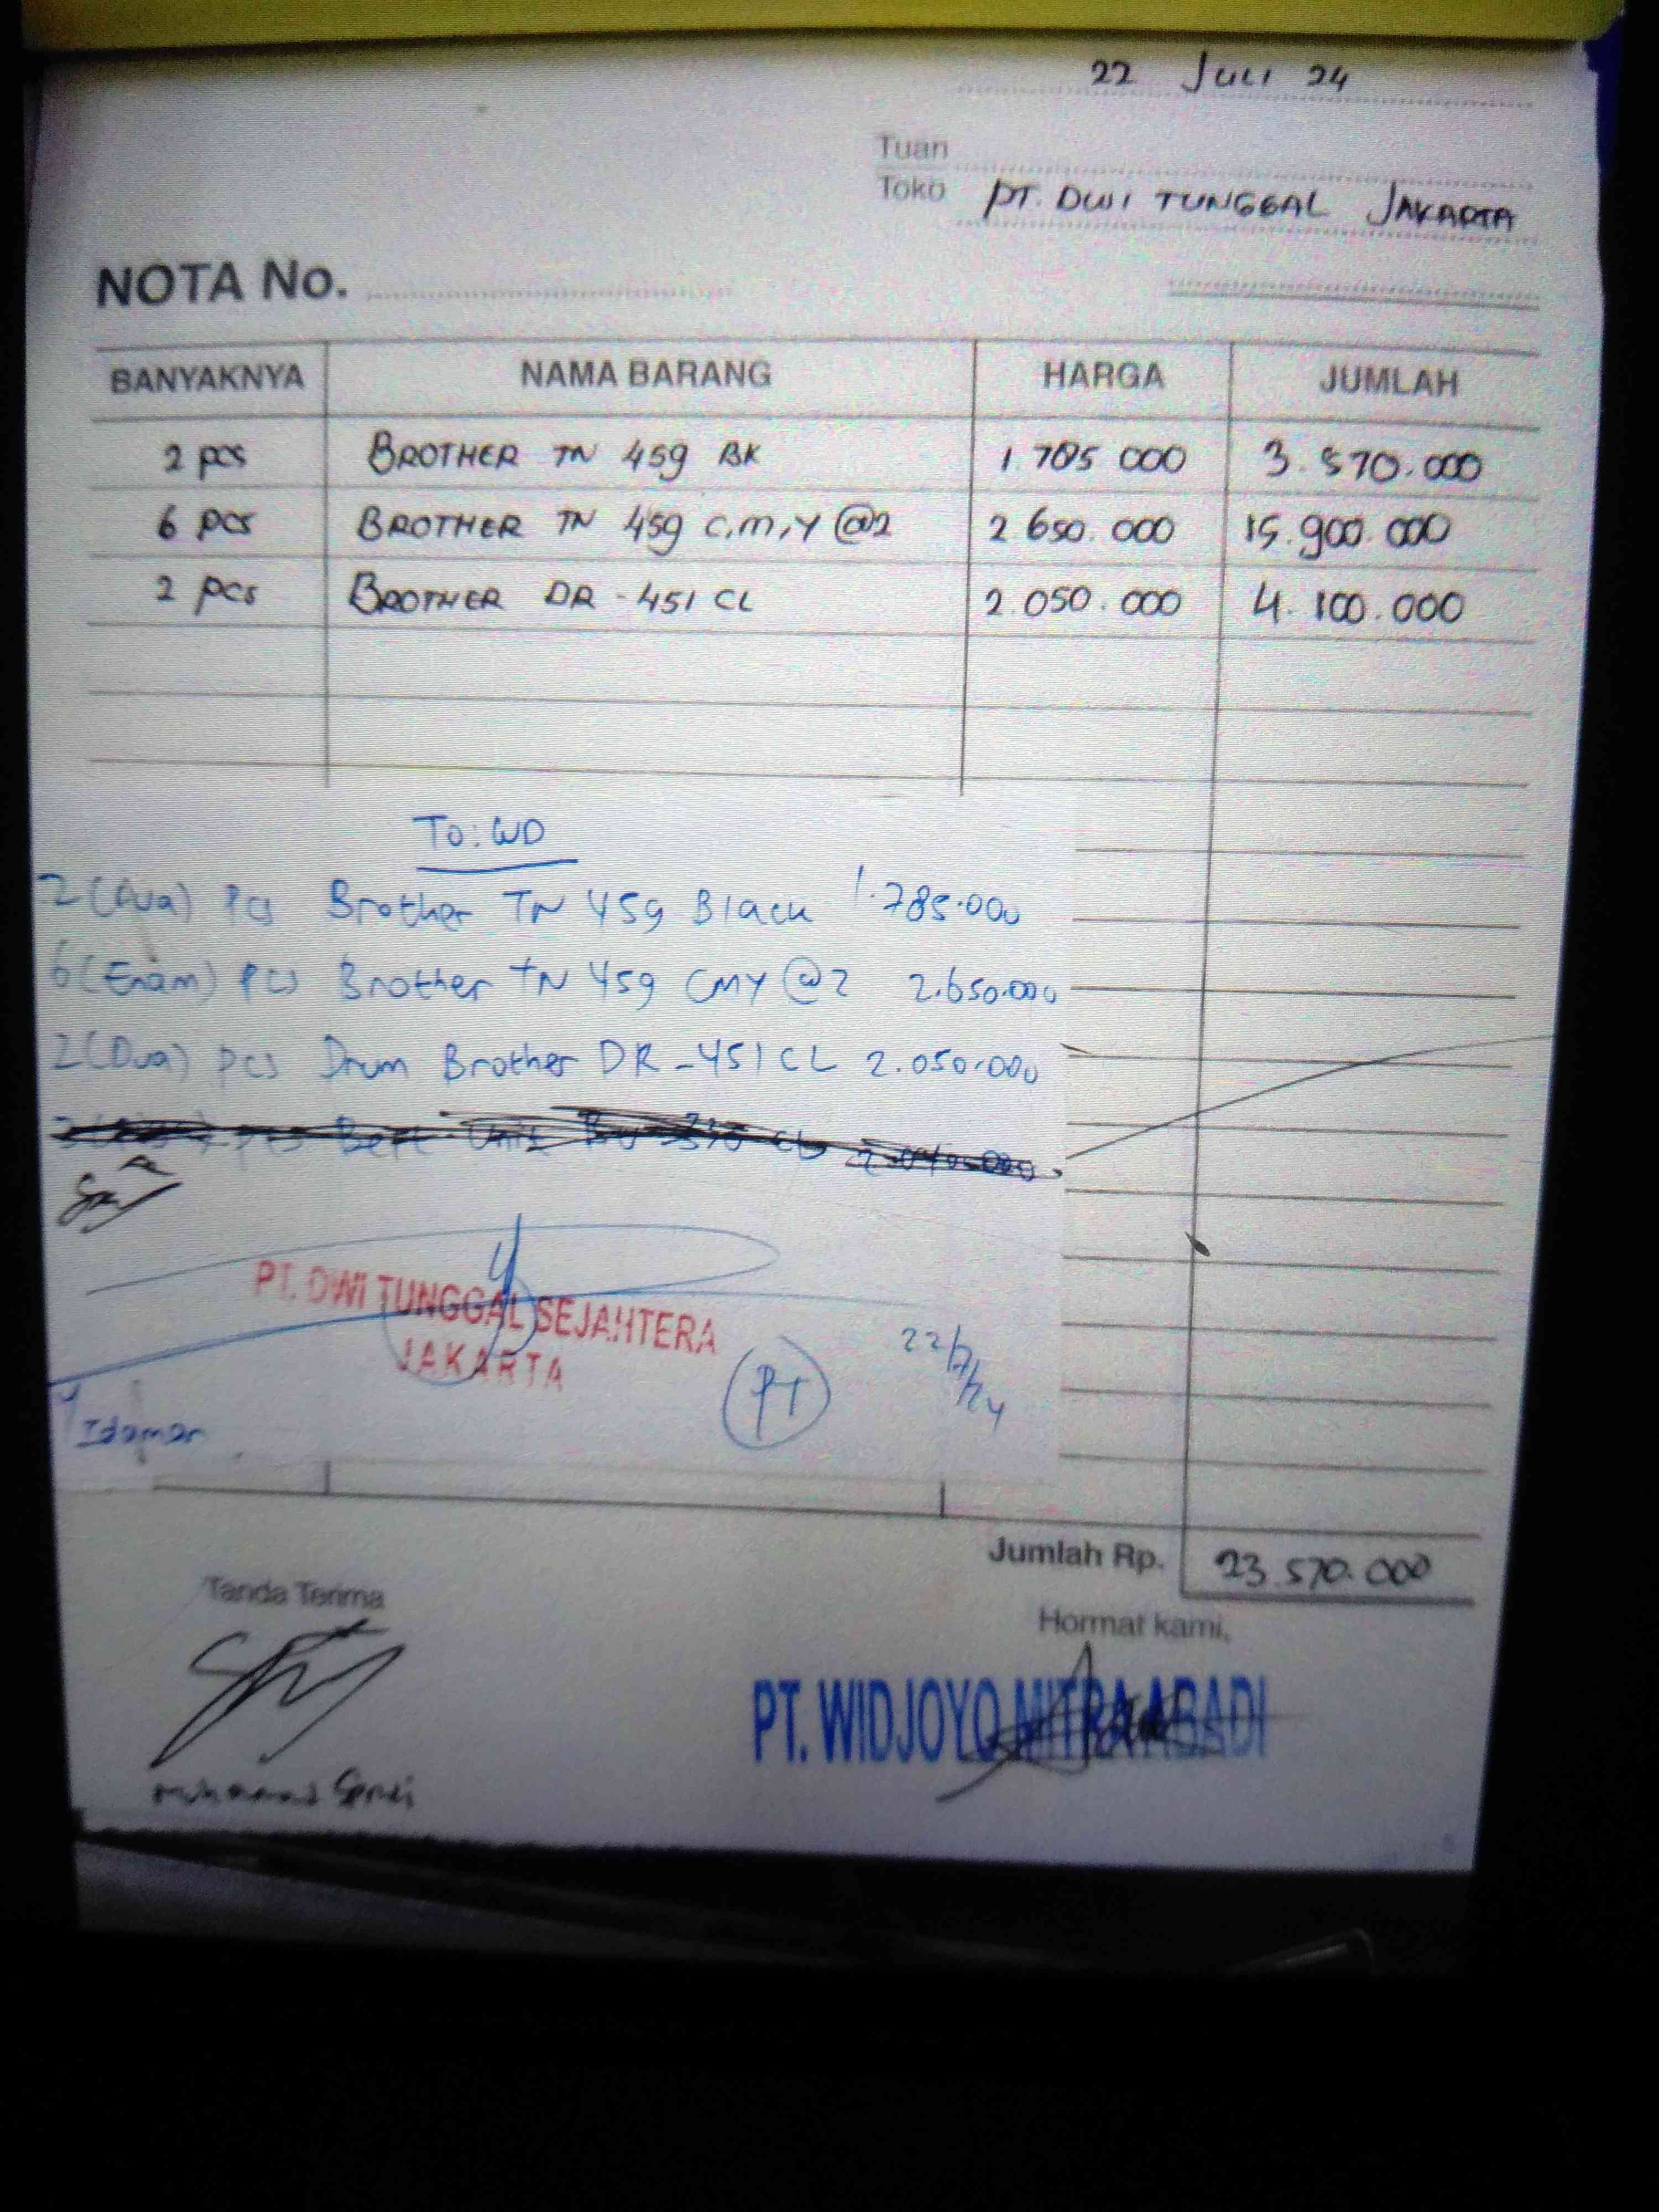 22 Juli 24
Tuan
Toko PT. DWI TUNGGAL JAKARTA
NOTA No.
BANYAKNYA NAMA BARANG HARGA JUMLAH
2 pcs BROTHER TN 459 BK 1.785 000 3.570.000
6 pcs BROTHER TN 459 C,M,Y @2 2 650.000 15.900.000
2 pcs BROTHER DR - 451 CL 2.050.000 4.100.000
To: WD
2 (Dua) Pcs Brother TN 459 Black 1.785.000
6 (Enam) Pcs Brother TN 459 CMY @2 2.650.000
2 (Dua) pcs Drum Brother DR - 451 CL 2.050.000
Pcs Belt Unit
PT. DWI TUNGGAL SEJAHTERA
JAKARTA
PT
22/7/24
Idamar
Jumlah Rp. 23.570.000
Tanda Terima
Hormat kami,
PT. WIDJOYO MITRA ABADI
Muhammad